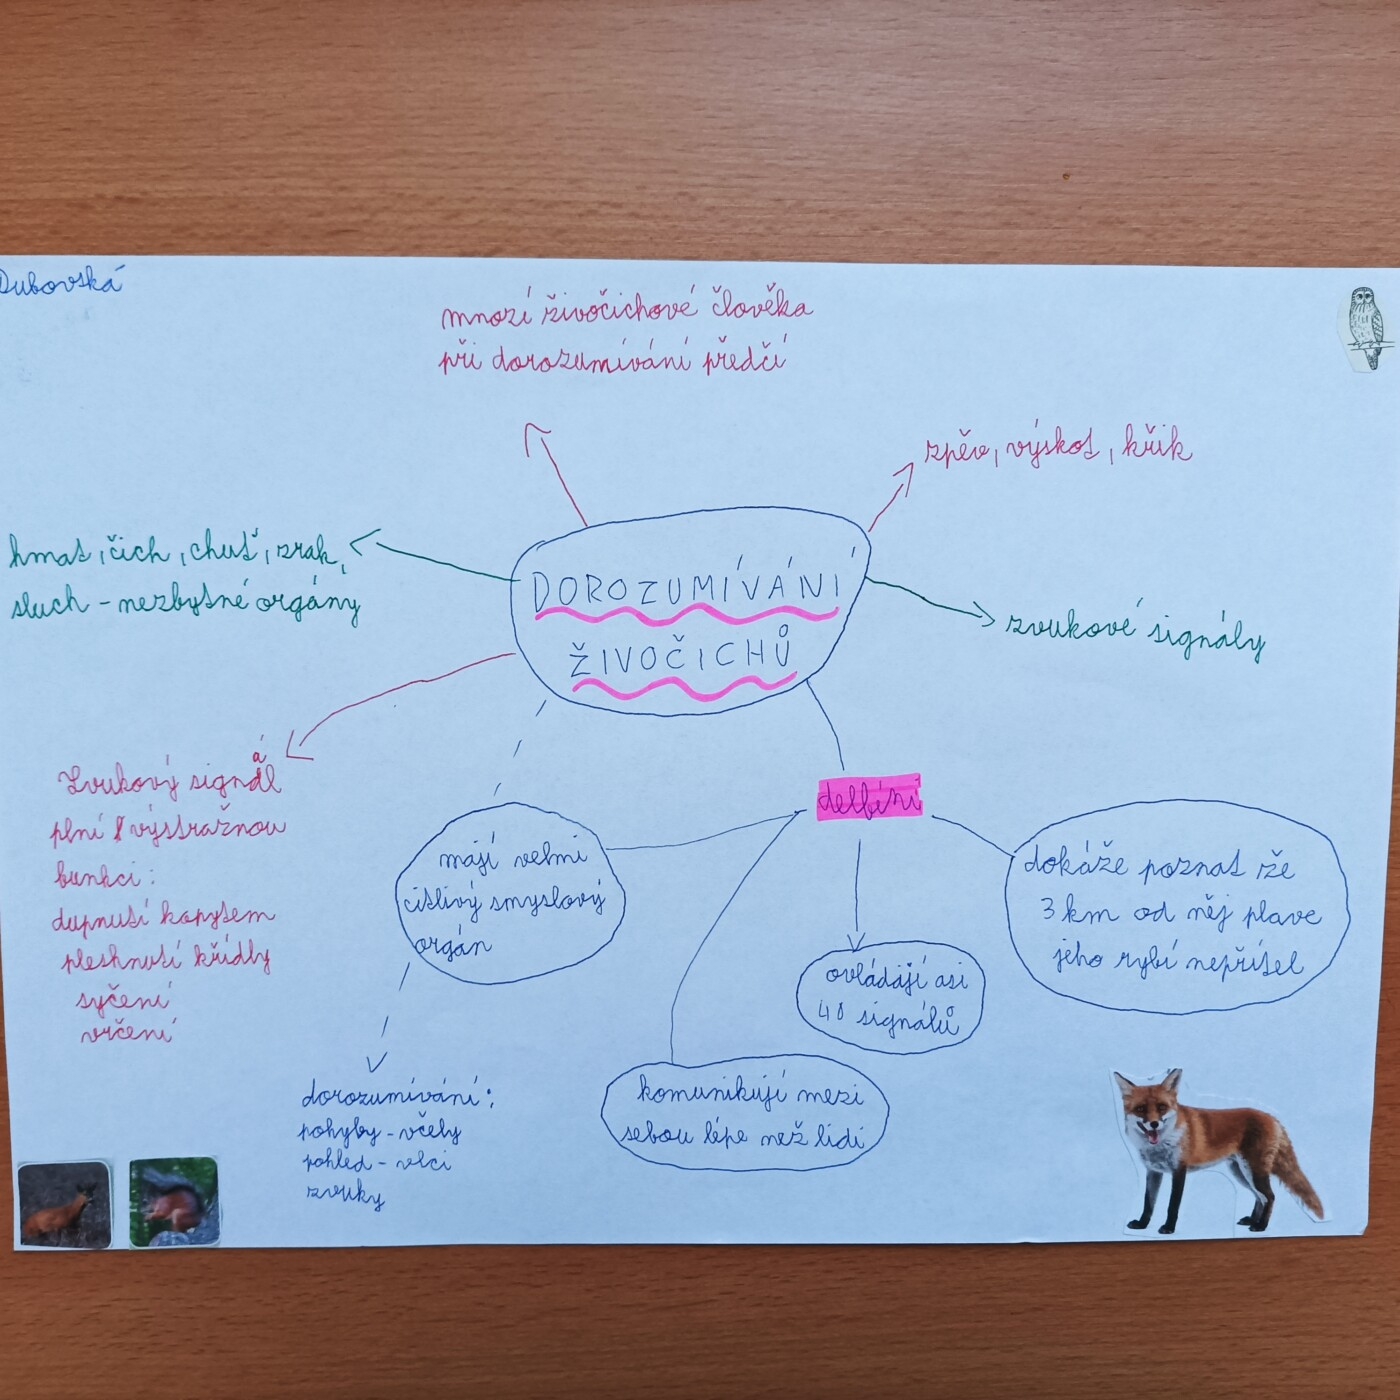 Dubovská
mnozí živočichové člověka
při dorozumívání předčí
zpěv, výskot, křik
hmat, čich, chuť, zrak,
sluch - nezbytné orgány
DOROZUMÍVÁNÍ
ŽIVOČICHŮ
zvukové signály
Zvukový signál
plní výstražnou
funkci:
dupnutí kopytem
plesknutí křídly
syčení
vrčení
delfíni
mají velmi
citlivý smyslový
orgán
dokáže poznat že
3 km od něj plave
jeho rybí nepřítel
ovládájí asi
40 signálů
komunikují mezi
sebou lépe než lidi
dorozumívání:
pohyby - včely
pohled - vlci
zvuky